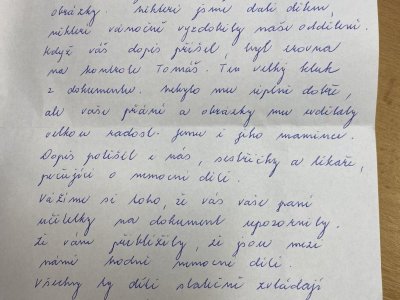 obrázky. Některé jsme dali dětem,
některé vánočně vyzdobily naše oddělení.
Když váš dopis přišel, byl zrovna
na kontrole Tomáš. Ten velký kluk
z dokumentu. Nebylo mu úplně dobře,
ale vaše přání a obrázky mu udělaly
velkou radost. Jemu i jeho mamince.
Dopis potěšil i nás, sestřičky a lékaře,
pečující o nemocné děti.
Vážíme si toho, že vás vaše paní
učitelky na dokument upozornily.
Že vám přiblížily, že jsou mezi
námi hodně nemocné děti.
Všechny ty děti statečně zvládají